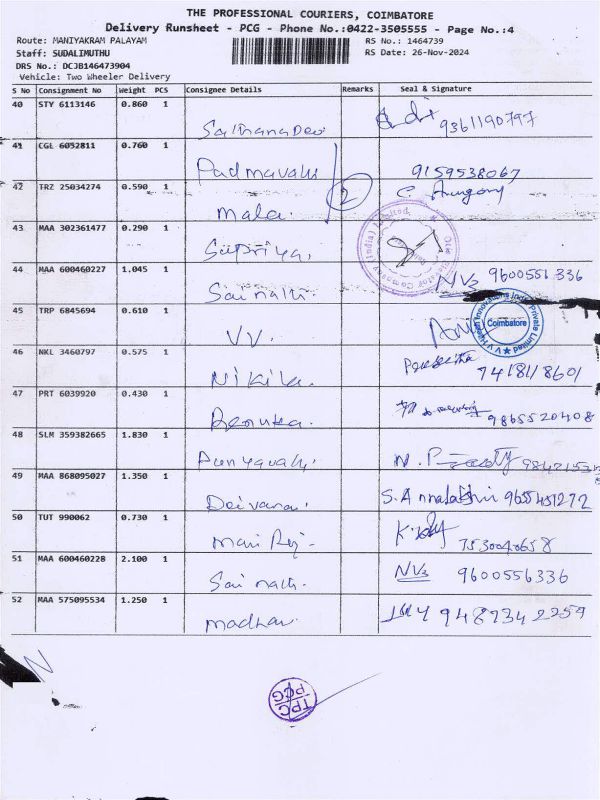 THE PROFESSIONAL COURIERS, COIMBATORE
Delivery Runsheet - PCG - Phone No.:0422-3505555 - Page No.:4
Route: MANIYAKRAM PALAYAM RS No.: 1464739
Staff: SUDALIMUTHU RS Date: 26-Nov-2024
DRS No.: DCJB146473904
Vehicle: Two Wheeler Delivery
S No Consignment No Weight PCS Consignee Details Remarks Seal & Signature
40 STY 6113146 0.860 1
9361190797
41 CGL 6052811 0.760 1
Padmavathi 9159538067
42 TRZ 25034274 0.590 1 2
Mala.
43 MAA 302361477 0.290 1
Supriya.
44 MAA 600460227 1.045 1
Sai nath. NV3 9600551336
45 TRP 6845694 0.610 1
VV. Coimbatore
46 NKL 3460797 0.575 1
Nikila. 7418118601
47 PRT 6039920 0.430 1
Renuka. 9865520408
48 SLM 359382665 1.830 1
Punyavathi.
49 MAA 868095027 1.350 1
Deivanai. 9655451272
50 TUT 990062 0.730 1
Mari Raj- 7530040658
51 MAA 600460228 2.100 1
Sai nath. NV3 9600556336
52 MAA 575095534 1.250 1
Madhav. 9487342259
N
TPC
PCG